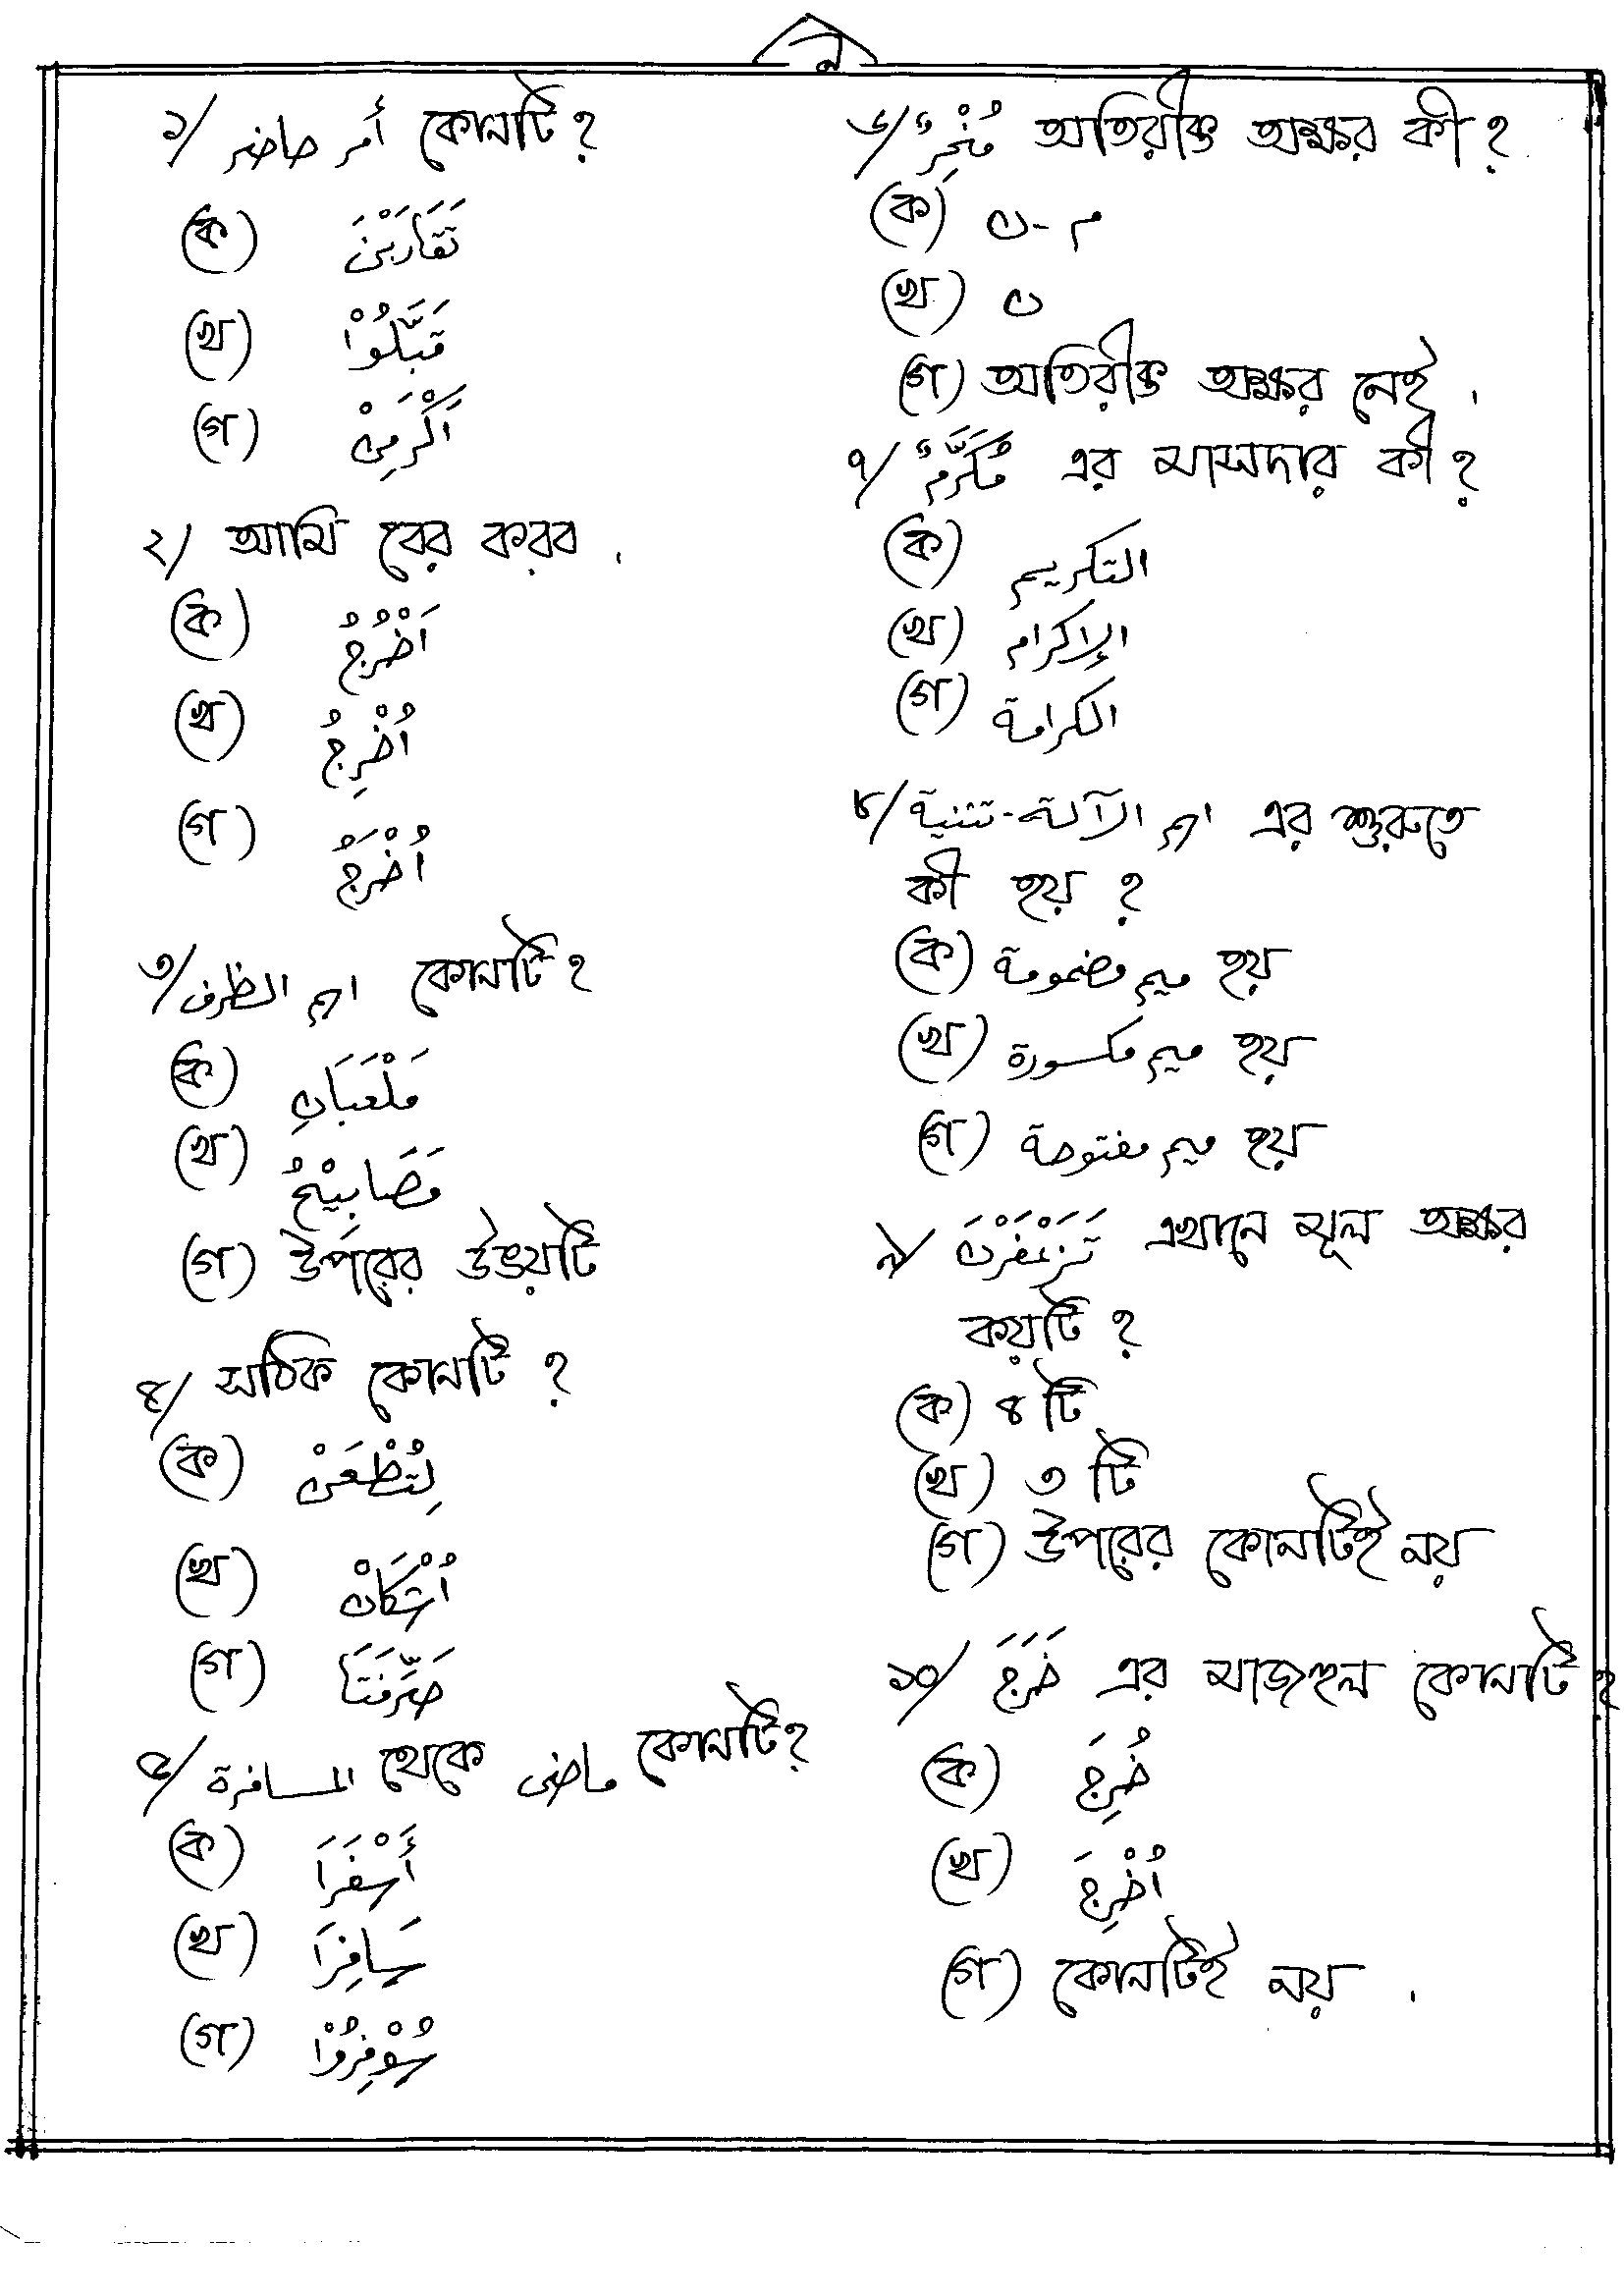 ন
১/ أمر حاضر কোনটি?
(ক) تَقَارَبْنَ
(খ) قَبَّلُوْا
(গ) اَكْرَمِيْ
২/ আমি বের করব .
(ক) اَخْرُجُ
(খ) اُخْرِجُ
(গ) اُخْرَجُ
৩/ اسم الظرف কোনটি?
(ক) مَلْعَبَانِ
(খ) مَصَابِيْحُ
(গ) উপরের উভয়টি
৪/ সঠিক কোনটি ?
(ক)
(খ)
(গ) صَرَّفَتَا
৫/ المسافرة থেকে ماضى কোনটি?
(ক) أَسْفَرَا
(খ) سَافِرَا
(গ) سُوْفِرُوْا
৬/ অতিরীক্ত অক্ষর কী ?
(ক) م - ن
(খ) ن
(গ) অতিরীক্ত অক্ষর নেই .
৭/ مُكَرَّمٌ এর মাসদার কী ?
(ক) التكريم
(খ) الإكرام
(গ) الكرامة
৮/ اسم الآلة - تثنية এর শুরুতে
কী হয় ?
(ক) ميم مضمومة হয়
(খ) ميم مكسورة হয়
(গ) ميم مفتوحة হয়
৯/ تَزَعْفَرْنَ এখানে মূল অক্ষর
কয়টি ?
(ক) ৪ টি
(খ) ৩ টি
(গ) উপরের কোনটিই নয়
১০/ خَرَجَ এর মাজহুল কোনটি ?
(ক) خُرِجَ
(খ) اُخْرِجَ
(গ) কোনটিই নয় .